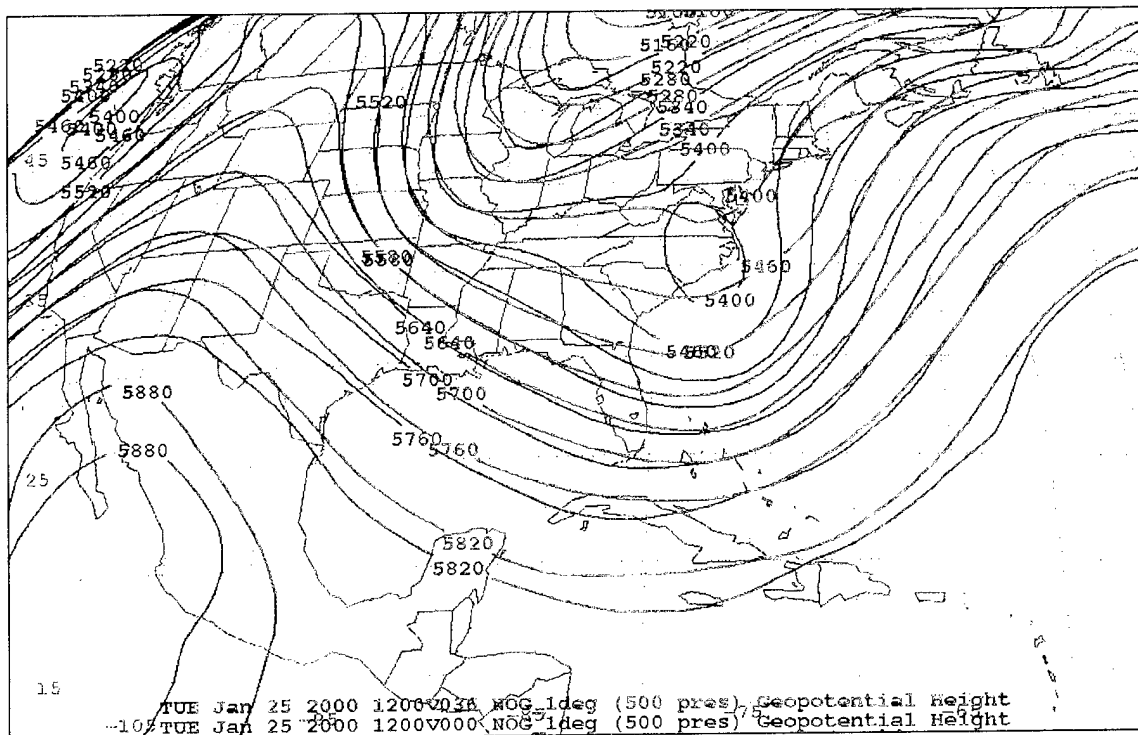 5220
5220
5160
5280
5220
5400
5280
5520
5280
5400
5340
5460
5400
5340
5460
5400
45
5460
5520
5400
5580
5580
5460
35
5400
5640
5640
5460
5520
5700
5880
5700
5760
5880
5760
25
5820
5820
15
TUE Jan 25 2000 1200V036 NOG 1deg (500 pres) Geopotential Height
-105
TUE Jan 25 2000 1200V000 NOG 1deg (500 pres) Geopotential Height